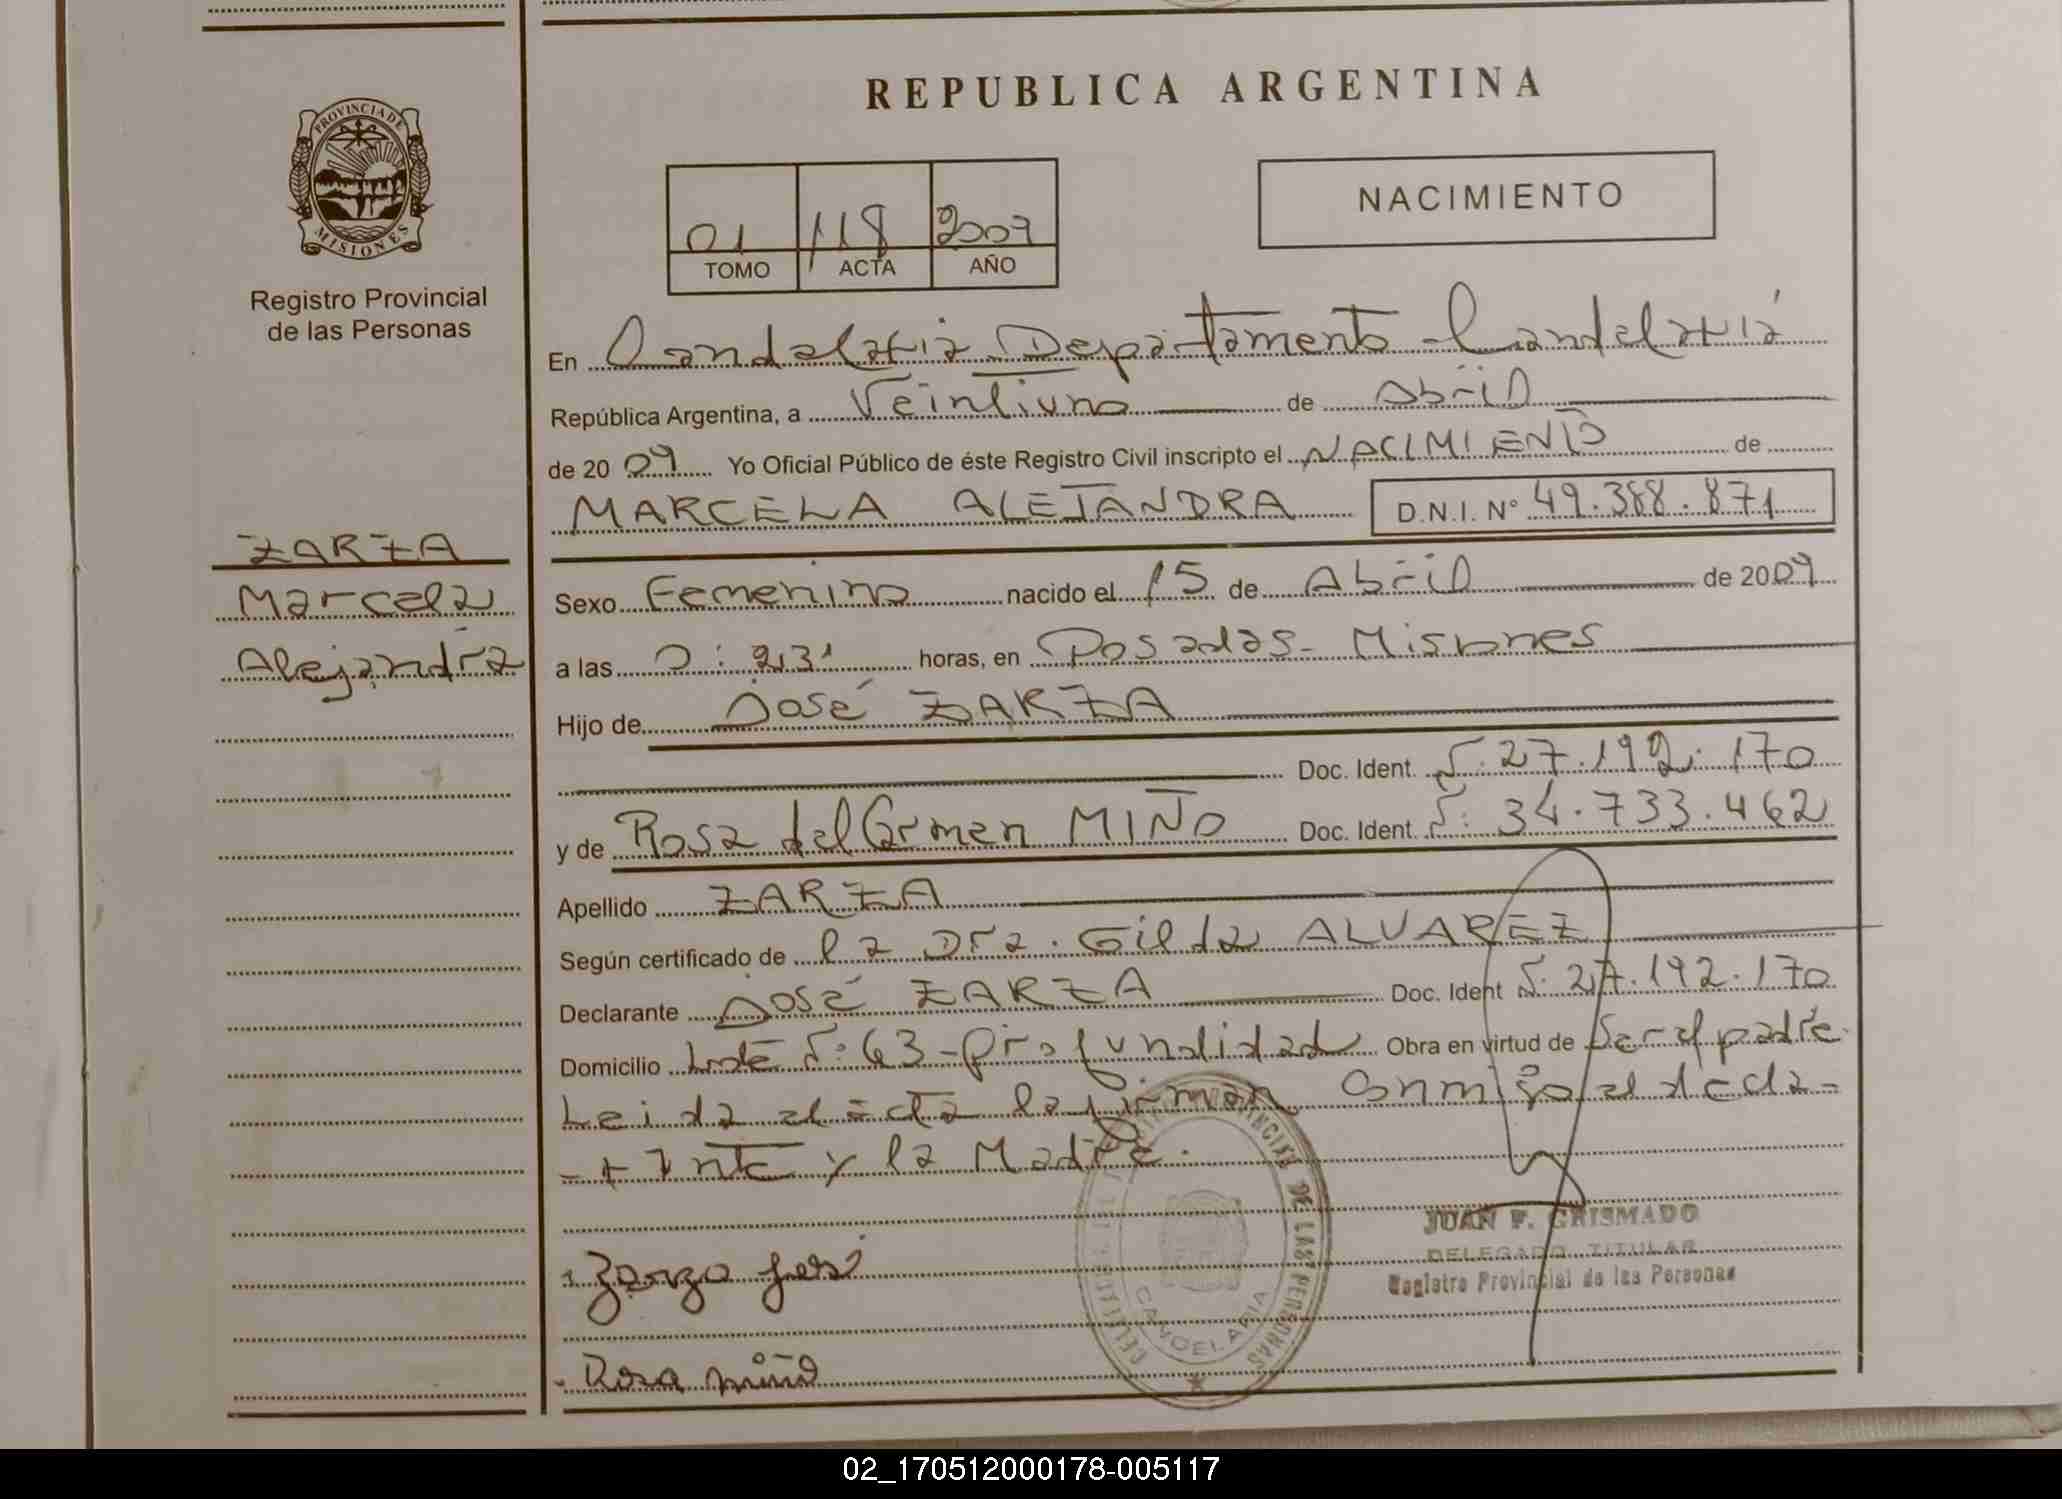 REPUBLICA ARGENTINA
PROVINCIA DE
MISIONES
Registro Provincial
de las Personas
NACIMIENTO
01 118 2009
TOMO ACTA AÑO
En Candelaria Departamento Candelaria
República Argentina, a Veintiuno de Abril
de 2009 Yo Oficial Público de éste Registro Civil inscripto el NACIMIENTO de
MARCELA ALEJANDRA D.N.I. Nº 49.388.871
ZARZA
Marcela
Alejandra
Sexo Femenino nacido el 15 de Abril de 2009
a las 0:231 horas, en Posadas - Misiones
Hijo de José ZARZA
Doc. Ident. 27.192.170
y de Rosa del Carmen MIÑO Doc. Ident. 34.733.462
Apellido ZARZA
Según certificado de la Dra. Gilda ALVAREZ
Declarante José ZARZA Doc. Ident 27.192.170
Domicilio Lote 63 - Profundidad Obra en virtud de Ser el padre
Leida el acta la firman Conmigo el decla-
-rante y la Madre.
Zarza José
Rosa miño
DE LAS PERSONAS
CANDELARIA
JUAN F. GRISMADO
DELEGADO TITULAR
Registro Provincial de las Personas
02_170512000178-005117